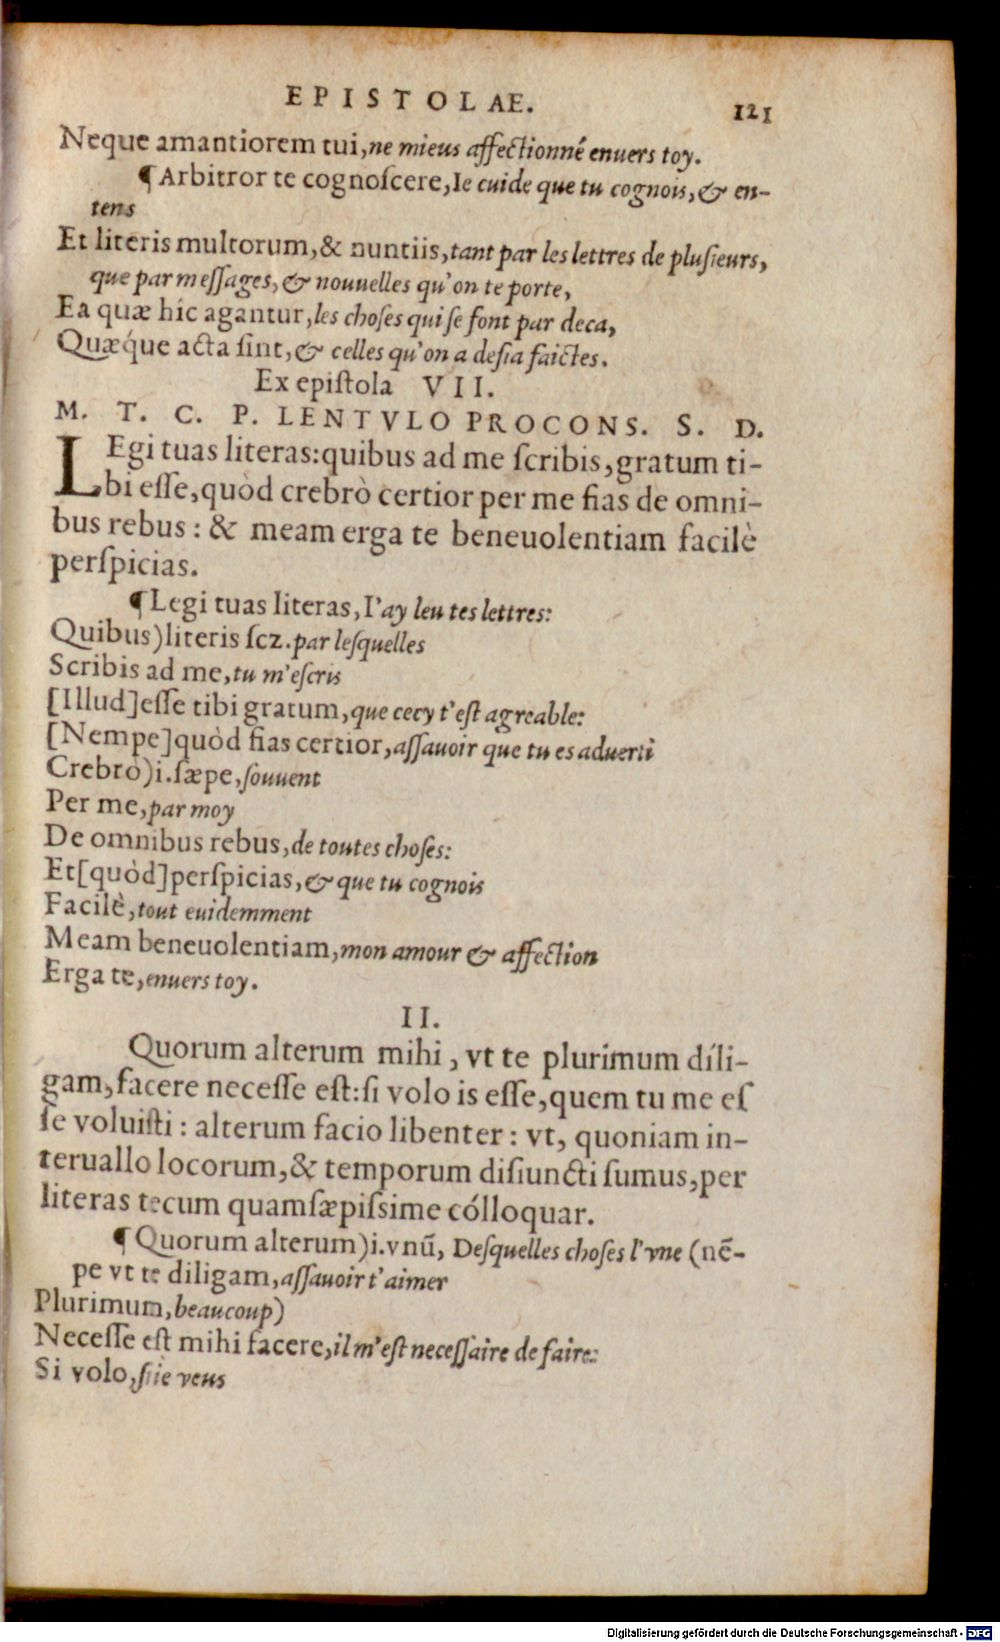 EPISTOLAE. 121
Neque amantiorem tui, ne mieus affectionné enuers toy.
¶Arbitror te cognoſcere, Ie cuide que tu cognois, & en-
tens
Et literis multorum, & nuntiis, tant par les lettres de pluſieurs,
que par meſſages, & nouuelles qu'on te porte,
Ea quæ hîc agantur, les choſes qui ſe font par deca,
Quæque acta ſint, & celles qu'on a deſia faictes.
Ex epiſtola VII.
M. T. C. P. LENTVLO PROCONS. S. D.
LEgi tuas literas: quibus ad me ſcribis, gratum ti-
bi eſſe, quòd crebrò certior per me fias de omni-
bus rebus: & meam erga te beneuolentiam facilè
perſpicias.
¶Legi tuas literas, I'ay leu tes lettres:
Quibus) literis ſcz. par leſquelles
Scribis ad me, tu m'eſcris
[Illud] eſſe tibi gratum, que cecy t'eſt agreable:
[Nempe] quòd fias certior, aſſauoir que tu es aduerti
Crebrò) i. ſæpe, ſouuent
Per me, par moy
De omnibus rebus, de toutes choſes:
Et [quòd] perſpicias, & que tu cognois
Facilè, tout euidemment
Meam beneuolentiam, mon amour & affection
Erga te, enuers toy.
II.
Quorum alterum mihi, vt te plurimum díli-
gam, facere neceſſe eſt: ſi volo is eſſe, quem tu me eſ
ſe voluiſti: alterum facio libenter: vt, quoniam in-
teruallo locorum, & temporum diſiuncti ſumus, per
literas tecum quamſæpiſſime cólloquar.
¶Quorum alterum) i. vnū, Deſquelles choſes l'vne (nē-
pe vt te diligam, aſſauoir t'aimer
Plurimum, beaucoup)
Neceſſe eſt mihi facere, il m'eſt neceſſaire de faire:
Si volo, ſi ie veus
Digitalisierung gefördert durch die Deutsche Forschungsgemeinschaft - DFG